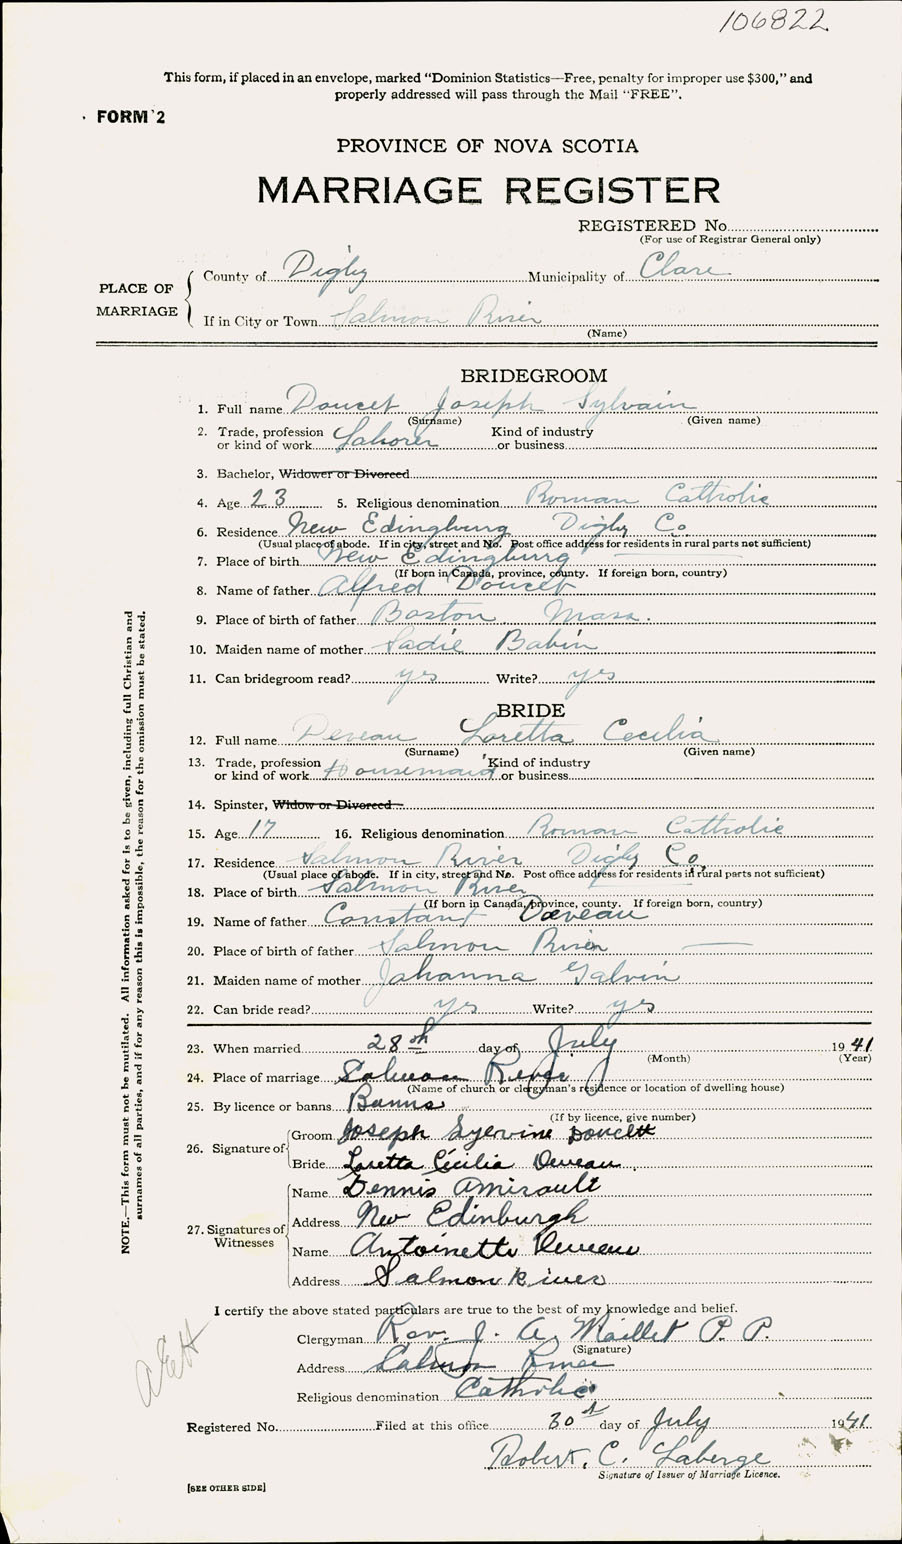 106822
This form, if placed in an envelope, marked “Dominion Statistics—Free, penalty for improper use $300,” and
properly addressed will pass through the Mail “FREE”.
FORM 2
PROVINCE OF NOVA SCOTIA
MARRIAGE REGISTER
REGISTERED No.
(For use of Registrar General only)
PLACE OF MARRIAGE
County of Digby Municipality of Clare
If in City or Town Salmon River
(Name)
BRIDEGROOM
1. Full name Doucet Joseph Sylvain
(Surname) (Given name)
2. Trade, profession or kind of work Laborer Kind of industry or business
3. Bachelor, Widower or Divorced
4. Age 23 5. Religious denomination Roman Catholic
6. Residence New Edingburg Digby Co
(Usual place of abode. If in city, street and No. Post office address for residents in rural parts not sufficient)
7. Place of birth New Edingburg
(If born in Canada, province, county. If foreign born, country)
8. Name of father Alfred Doucet
9. Place of birth of father Boston Mass.
10. Maiden name of mother Sadie Babin
11. Can bridegroom read? yes Write? yes
BRIDE
12. Full name Deveau Loretta Cecilia
(Surname) (Given name)
13. Trade, profession or kind of work Housemaid Kind of industry or business
14. Spinster, Widow or Divorced
15. Age 17 16. Religious denomination Roman Catholic
17. Residence Salmon River Digby Co.
(Usual place of abode. If in city, street and No. Post office address for residents in rural parts not sufficient)
18. Place of birth Salmon River
(If born in Canada, province, county. If foreign born, country)
19. Name of father Constant Deveau
20. Place of birth of father Salmon River
21. Maiden name of mother Johanna Galvin
22. Can bride read? yes Write? yes
23. When married 28th day of July 1941
(Month) (Year)
24. Place of marriage Salmon River
(Name of church or clergyman's residence or location of dwelling house)
25. By licence or banns Banns
(If by licence, give number)
26. Signature of
Groom Joseph Syervine Doucett
Bride Loretta Cecilia Deveau
27. Signatures of Witnesses
Name Dennis Amirault
Address New Edinburgh
Name Antoinette Deveau
Address Salmon River
I certify the above stated particulars are true to the best of my knowledge and belief.
Clergyman Rev. J. A. Maillet P. P.
(Signature)
Address Salmon River
Religious denomination Catholic
Registered No. Filed at this office 30th day of July 1941
Robert. C. Laberge
Signature of Issuer of Marriage Licence.
[SEE OTHER SIDE]
NOTE.—This form must not be mutilated. All information asked for is to be given, including full Christian and
surnames of all parties, and if for any reason this is impossible, the reason for the omission must be stated.